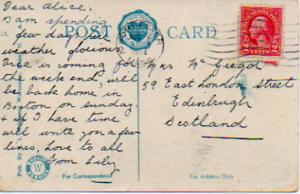 Dear Alice.
I am spending
a few days
weather glorious
Eric is coming for
the week end, will
be back home in
Boston on Sunday.
& if I have time
will write you a few
lines, love to all
from Lily
POST CARD
Mrs Mc Gregor
59 East London Street
Edinburgh
Scotland
For Correspondence
For Address Only
W
2 2